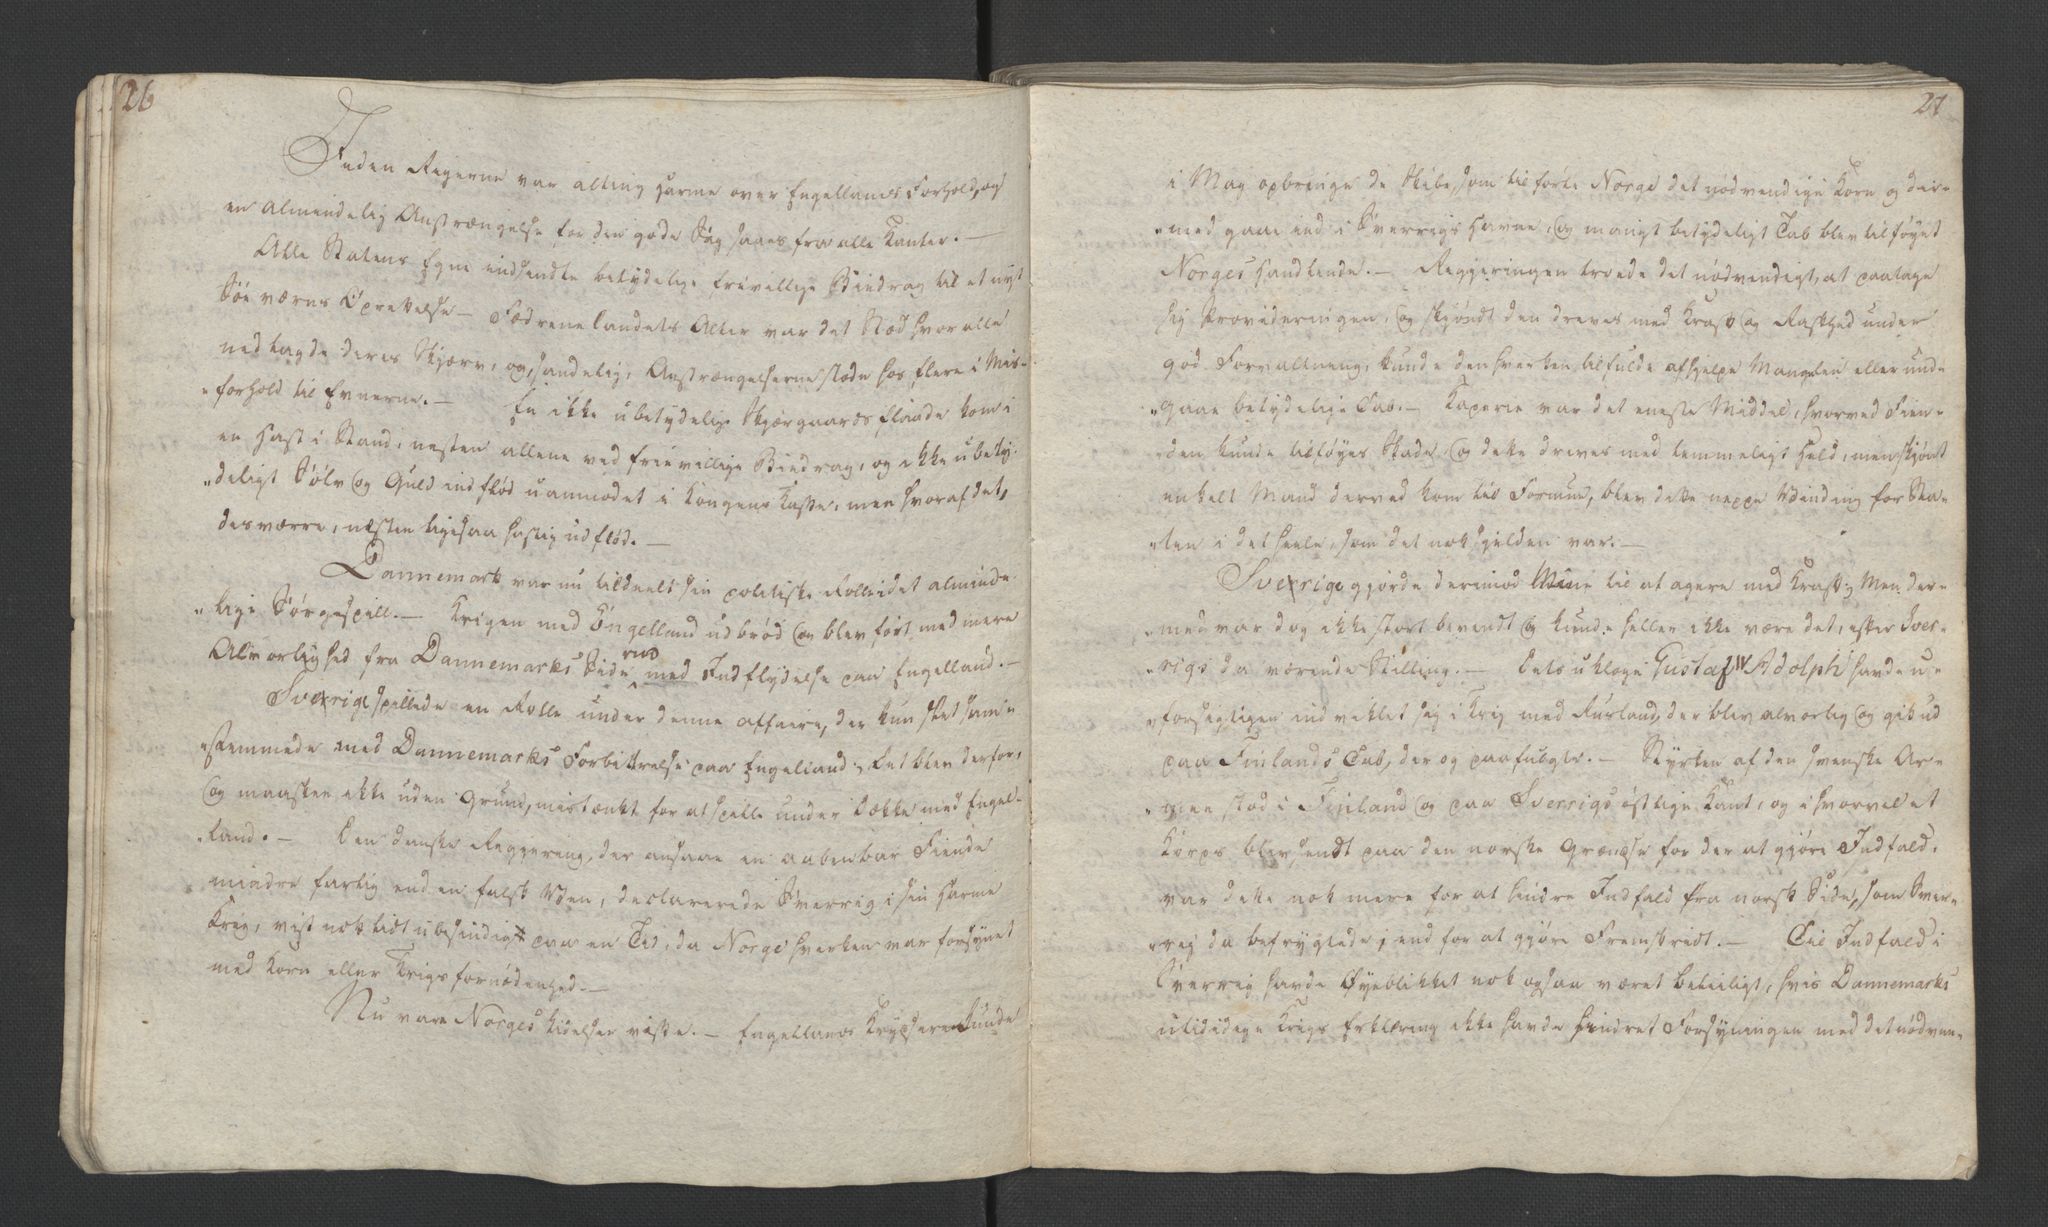 26
Inden Rigerne var alting Harme over Engellands Forhold, og
en almindelig Anstrængelse for den gode Sag saaes fra alle Kanter. —
Alle Statens Egne indsendte betydelige frivillige Biedrag til et nyt
Söe værns Oprettelse — Fædrenelandets Alter var det Stæd hvor alle
nedlagde deres Skjærv, og, sandelig, Anstrængelserne stode hos flere i Mis-
forhold til Evnerne. — En ikke ubetydelig Skjærgaards flaade kom i
en Hast i Stand, nesten allene ved frievillige Biedrag, og ikke ubety-
deligt Sölv og Guld indflöd uanmodet i Kongens Kasse, men hvoraf det,
desværre, næsten ligesaa hastig udflöd. —
Dannemark var nu tildeelt sin politiske Rolle i det alminde-
lige Sörgespill. — Krigen med Engelland udbröd og blev fört med mere
Alvorlighed fra Dannemarks Side end med Indflydelse paa Engelland. —
Sverrige spillede en Rolle under denne affaire, der kun slet sam-
stemmede med Dannemarks Forbittrelse paa Engelland; Det blev derfor,
og maaskee ikke uden Grund, mistænkt for at spille under Dække med Engel-
land. — Den danske Regjering, der ansaae en aabenbar Fiende
mindre farlig end en falsk Ven, declarerede Sverrig i sin Harme
Krig, vist nok lidt ubesindigt paa en Tid, da Norge hverken var forsynet
med Korn eller Krigsfornödenhed. —
Nu vare Norges Lidelser visse. — Engellands Krydsere kunde
27
i Mag opbringe de Skibe, som til förte Norge det nödvendige Korn og der-
med gaae ind i Sverrigs Havne, og mangt betydeligt Tab blev tilföyet
Norges Handlende. — Regjeringen troede det nödvendigt, at paatage
sig Provideringen, og skjöndt den dreves med Kraft og Raskhed under
god Forvaltning, kunde den hverken tilfulde afhjelpe Mangelen eller und-
gaae betydelige Tab. — Kaperie var det eneste Middel, hvorved Fien-
den kunde tilföyes Skade, og dette dreves med temmeligt Held, men skjönt
enkelt Mand derved kom til Formue, blev dette neppe Vinding for Sta-
ten i det heele, som det nok sjelden var. —
Sverrige gjorde derimod Mine til at agere med Kraft; Men der-
med var dog ikke stort bevendt og kunde heller ikke være det, efter Sver-
rigs da værende Stilling. — Dets ukloge Gustaf IV Adolph havde u-
forsigtigen indviklet sig i Krig med Rusland, der blev alvorlig og gik ud
paa Finlands Tab, der og paafulgte. — Styrken af den svenske Ar-
mee stod i Finland og paa Sverrigs östlige Kant, og i hvorvel et
Körps blev sendt paa den norske Grændse for der at gjöre Indfald,
var dette nok mere for at hindre Indfald fra norsk Side, som Sver-
rig da befrygtede, end for at gjöre Fremskridt. — Til Indfald i
Sverrig havde Öyeblikket nok ogsaa været beleiligt, hvis Dannemarks
utididige Krigs Erklæring ikke havde hindret Forsyningen med det nödven-